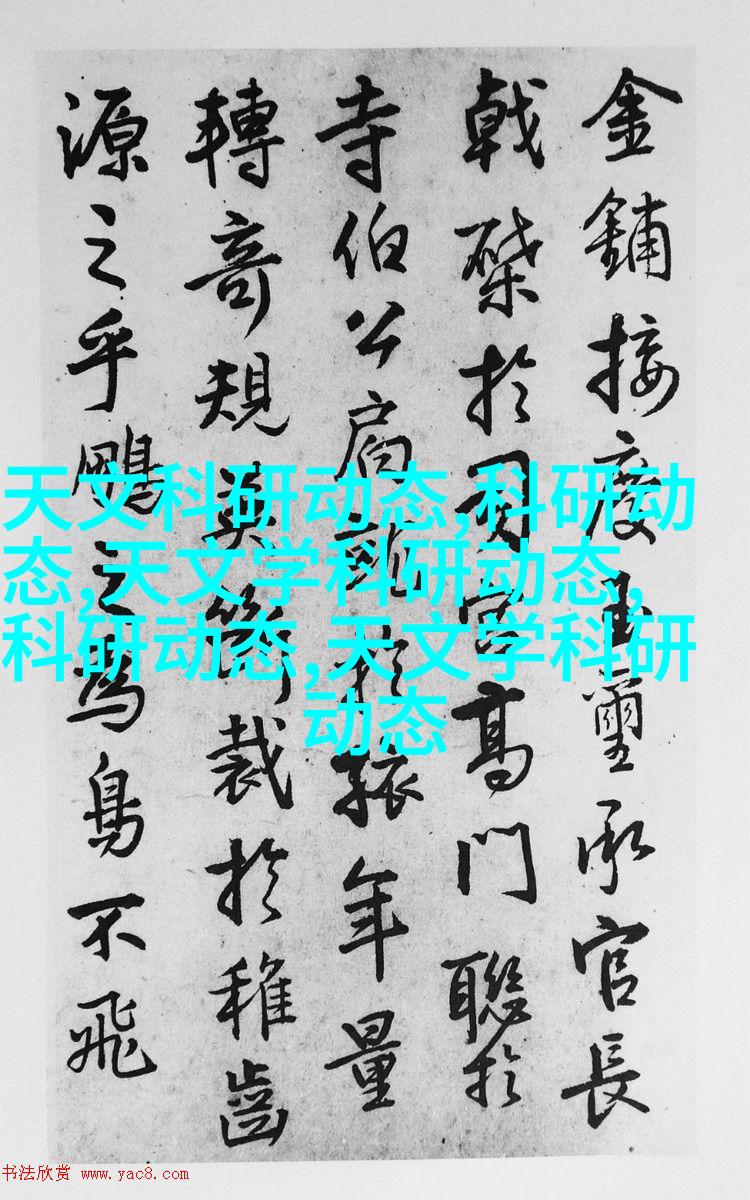 金鋪接慶玉璽承官長
戟棨於司宮高門聯於
寺伯公肩於年量
轉奇規英裁於稚齒
源之乎之為鳥不飛
天文科研动态,科研动
态,天文学科研动态,
科研动态,天文学科研
动态
书法欣赏 www.yac8.com